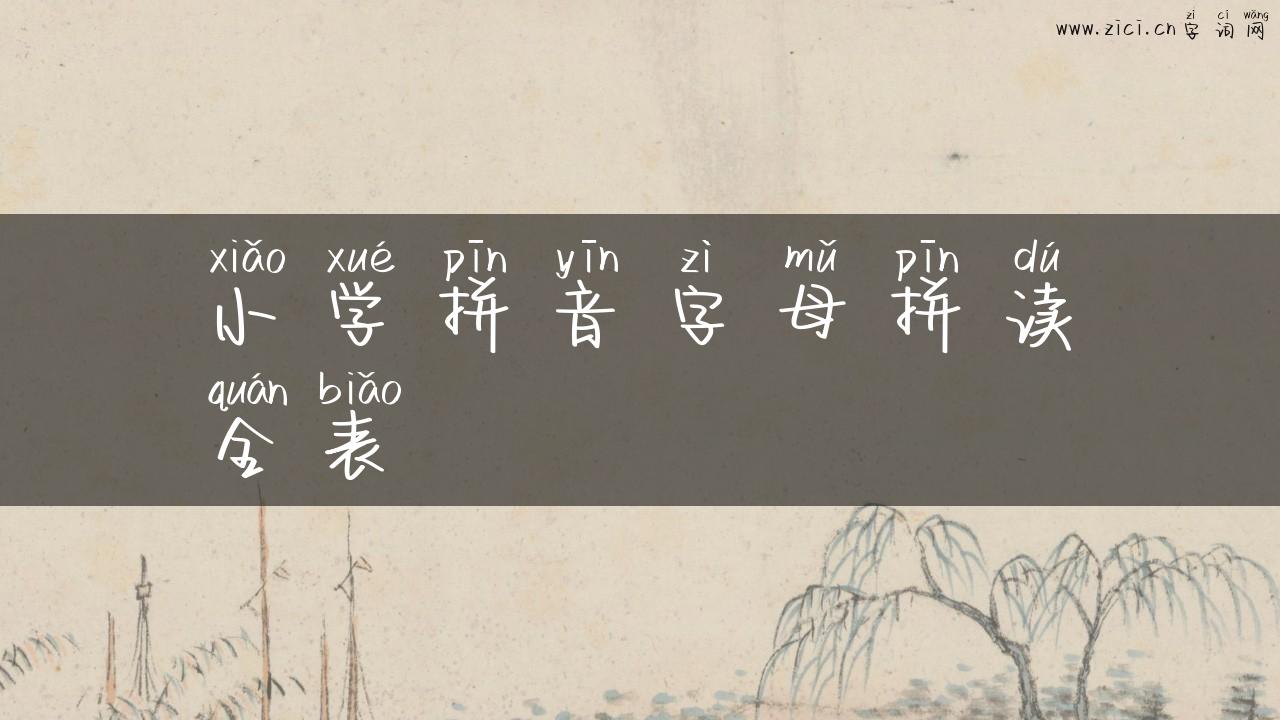 zì cí wǎng
www.zici.cn 字 词 网
xiǎo xué pīn yīn zì mǔ pīn dú
小 学 拼 音 字 母 拼 读
quán biǎo
全 表